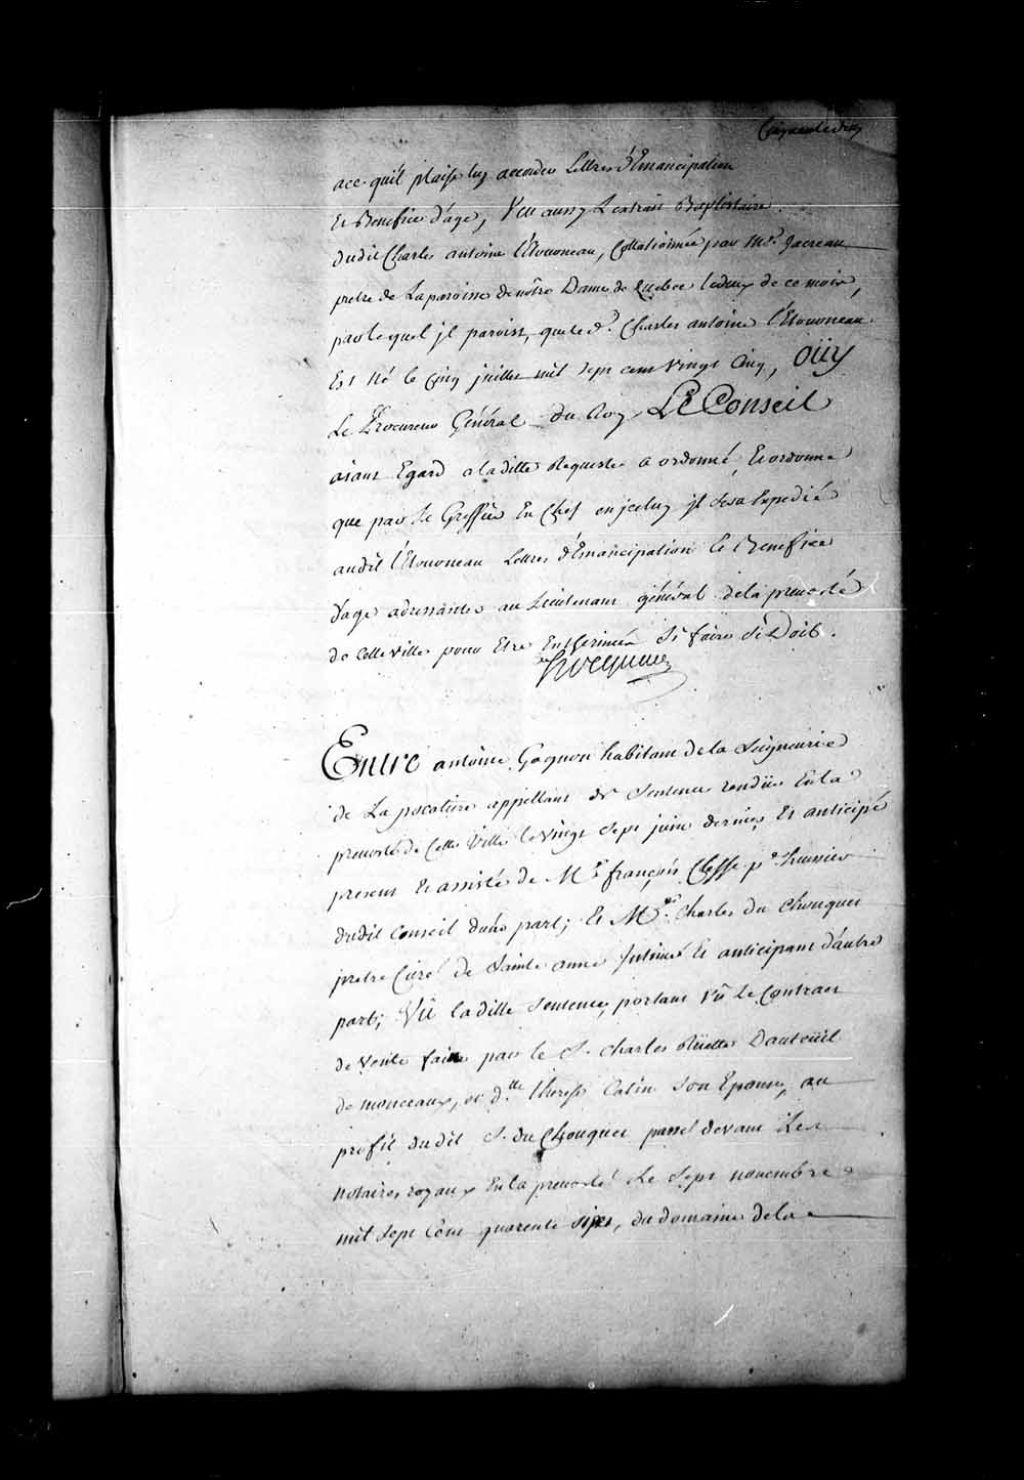 Cinquante deux
ace quil plaise luy accorder Lettres d'Emancipation
Et Benefice d'age, Veu aussy Lextrait Baptistaire
dudit Charles antoine l'Etourneau, Collationnée par Mr.
pretre de La paroisse de nôtre Dame de Quebec ledeux de ce mois,
par lequel jl paroist, que led. Charles antoine l'Etourneau
Est Né le Cinq juillet mil sept cent vingt Cinq, Oüy
Le Procureur Général du Roy, Le Conseil
aiant Egard aladitte Requeste a ordonné, Et ordonne
que par Le Greffier En Chef en jceluy jl sera Expedié
audit l'Etourneau Lettres d'Emancipation Et Benefice
d'age adressantes au Lieutenant général dela prevosté
de cette ville pour Etre Entherinée Si faire Se Doit.
Entre antoine Gagnon habitant de la Seigneurie
de La pocatiere appellant de Sentence rendüe En la
prevosté de Cette Ville le vingt sept juin dernier Et anticipé
present Et assisté de Me françois Clesse pr. huissier
dudit Conseil d'une part; Et Mre. Charles du Chouquet
pretre Curé de Sainte anne Intimé Et anticipant d'autre
part; Vû laditte Sentence, portant Vû Le Contract
de Vente faite par le S. Charles Rüette Dauteüil
de monceaux, et dlle. therese Catin Son Epouse, au
profit dudit S. du Chouquet passé devant Les
notaires royaux En la prevosté Le Sept novembre
mil sept Cent quarente six, du domaine dela